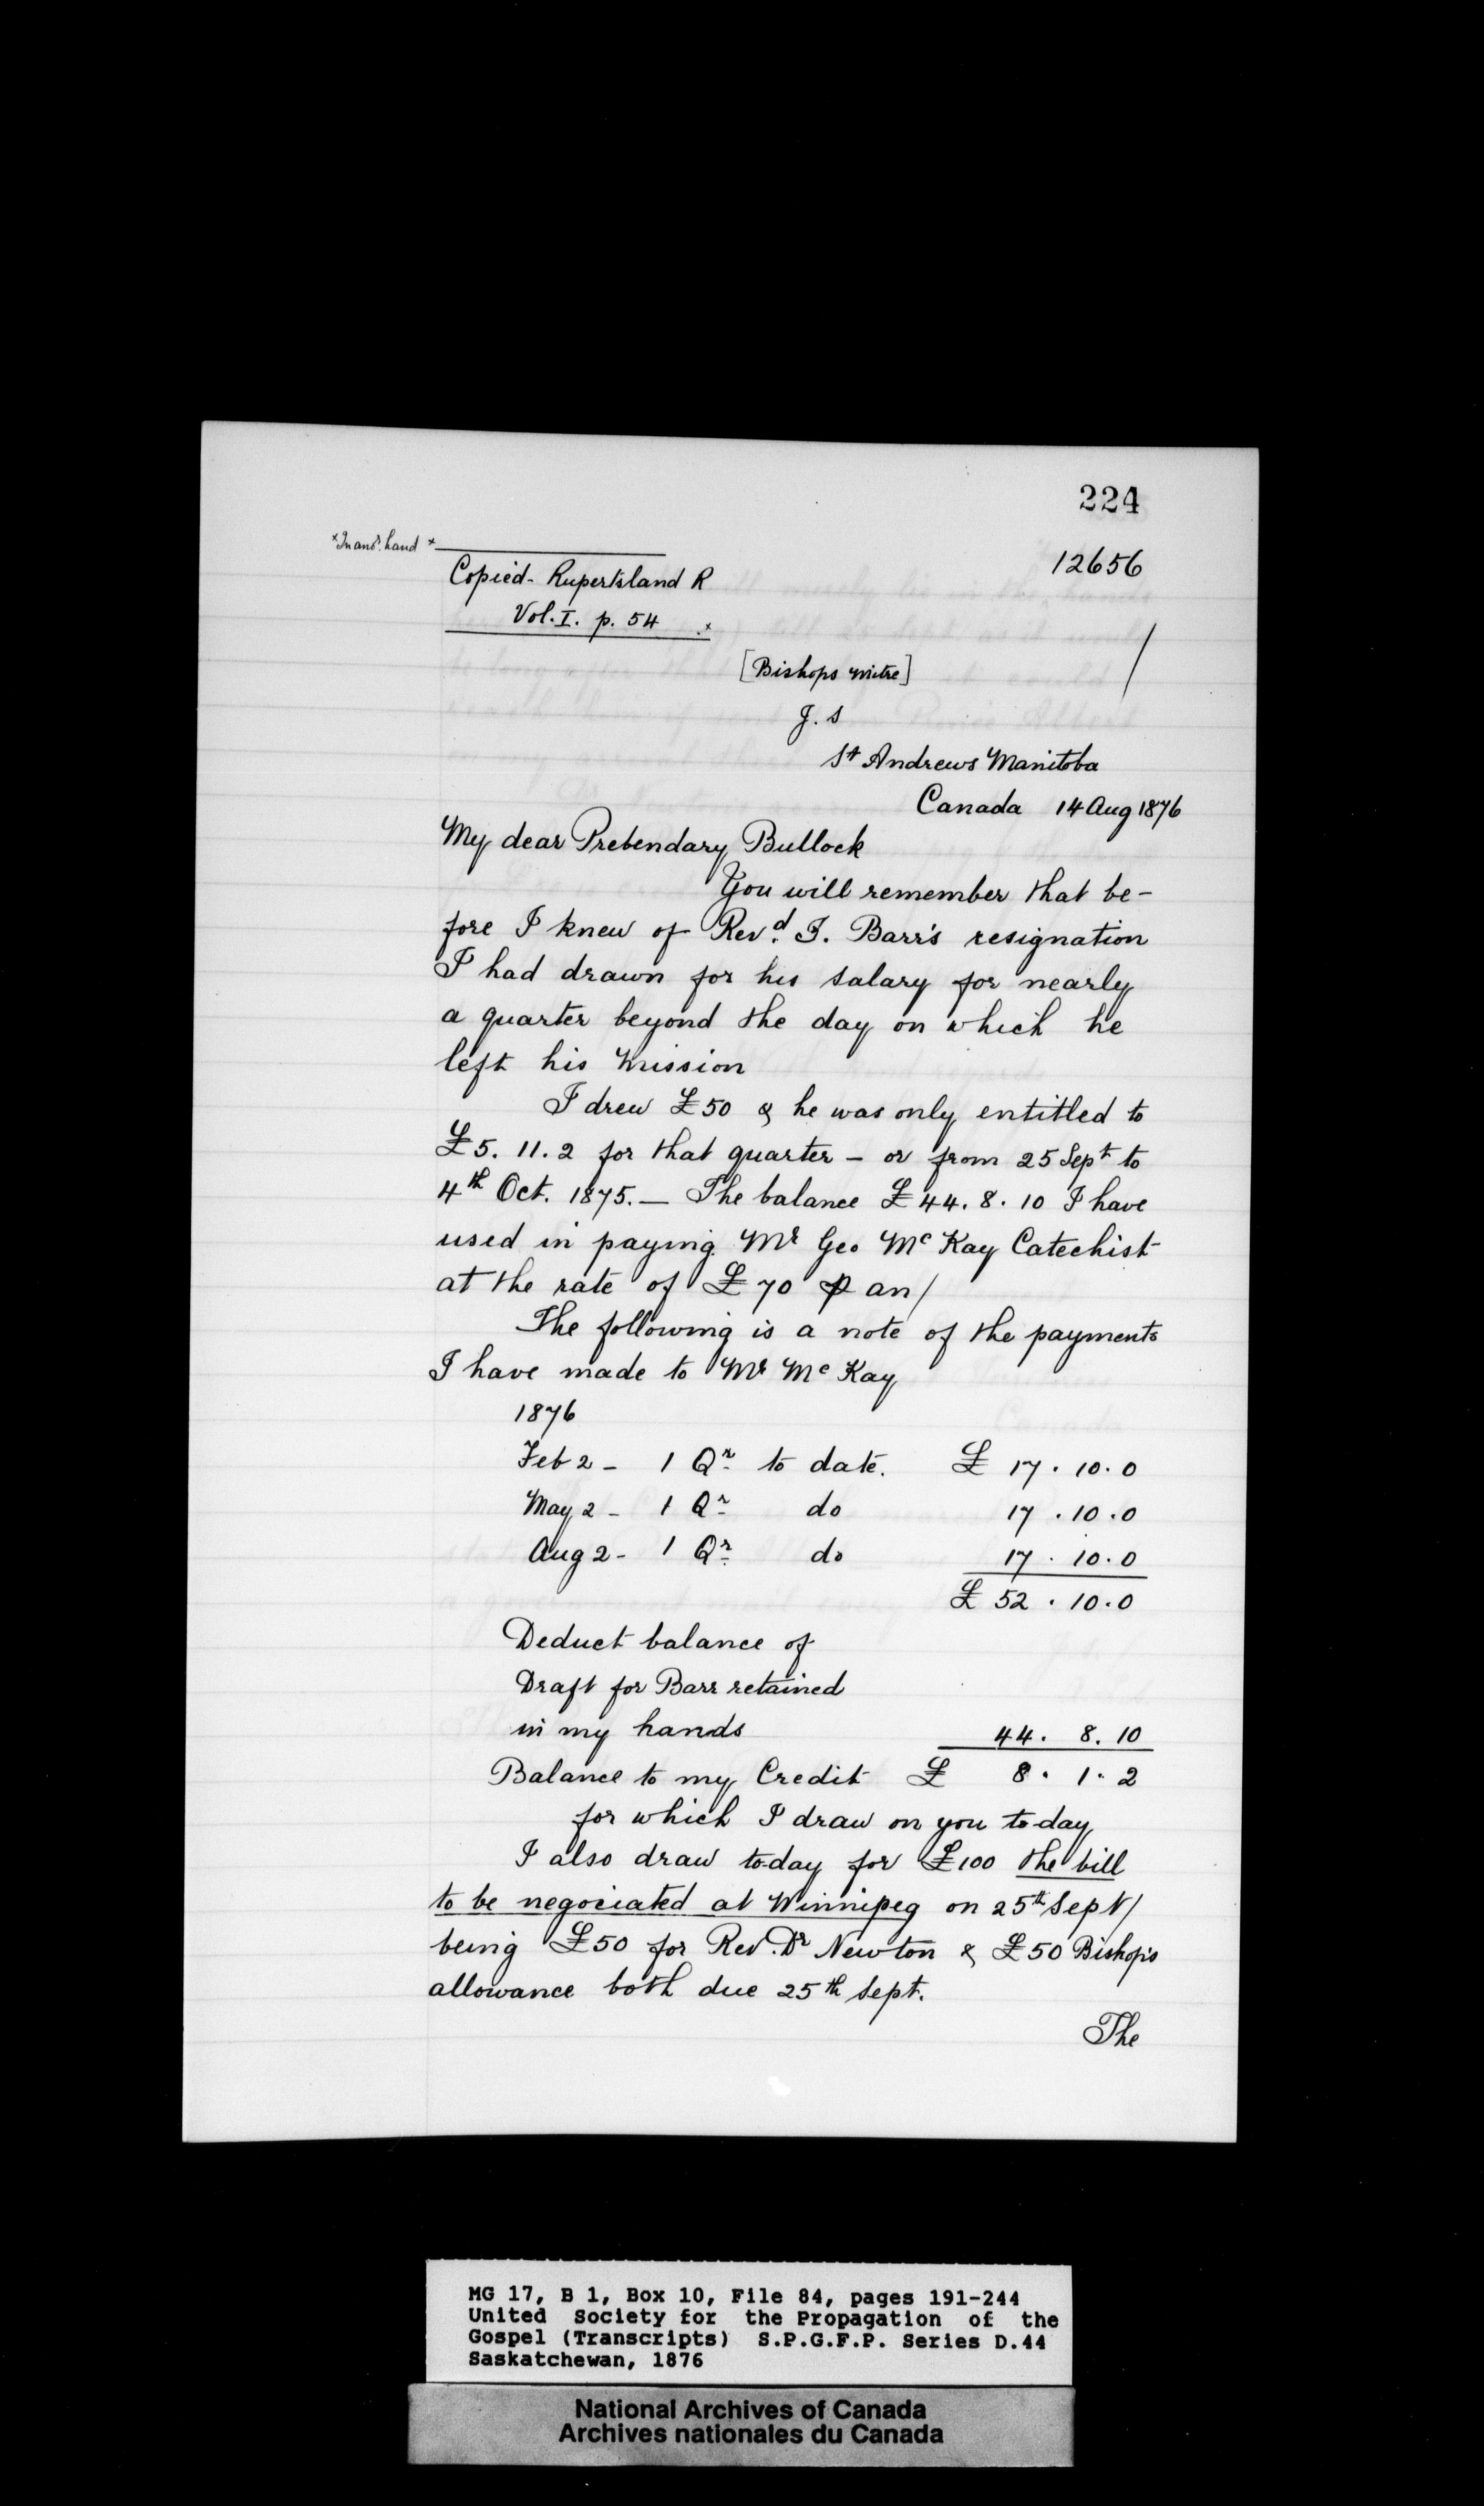 224
*In anor. hand *
12656
Copied- Rupertsland R
Vol. I. p. 54 *
[Bishops mitre]
J. S
St Andrews Manitoba
Canada 14 Aug 1876
My dear Prebendary Bullock
You will remember that be-
fore I knew of Revd. F. Barr's resignation
I had drawn for his salary for nearly
a quarter beyond the day on which he
left his Mission
I drew £50 & he was only entitled to
£5. 11. 2 for that quarter - or from 25 Sept to
4th Oct. 1875. — The balance £44. 8. 10 I have
used in paying Mr Geo McKay Catechist
at the rate of £70 p an/
The following is a note of the payments
I have made to Mr McKay
1876
Feb 2 - 1 Qr to date. £ 17. 10. 0
May 2 - 1 Qr do 17. 10. 0
Aug 2 - 1 Qr do 17. 10. 0
£ 52. 10. 0
Deduct balance of
Draft for Barr retained
in my hands 44. 8. 10
Balance to my Credit £ 8. 1. 2
for which I draw on you to-day
I also draw to-day for £100 the bill
to be negociated at Winnipeg on 25th Sept/
being £50 for Rev. Dr Newton & £50 Bishop's
allowance both due 25th Sept.
The
MG 17, B 1, Box 10, File 84, pages 191-244
United Society for the Propagation of the
Gospel (Transcripts) S.P.G.F.P. Series D.44
Saskatchewan, 1876
National Archives of Canada
Archives nationales du Canada